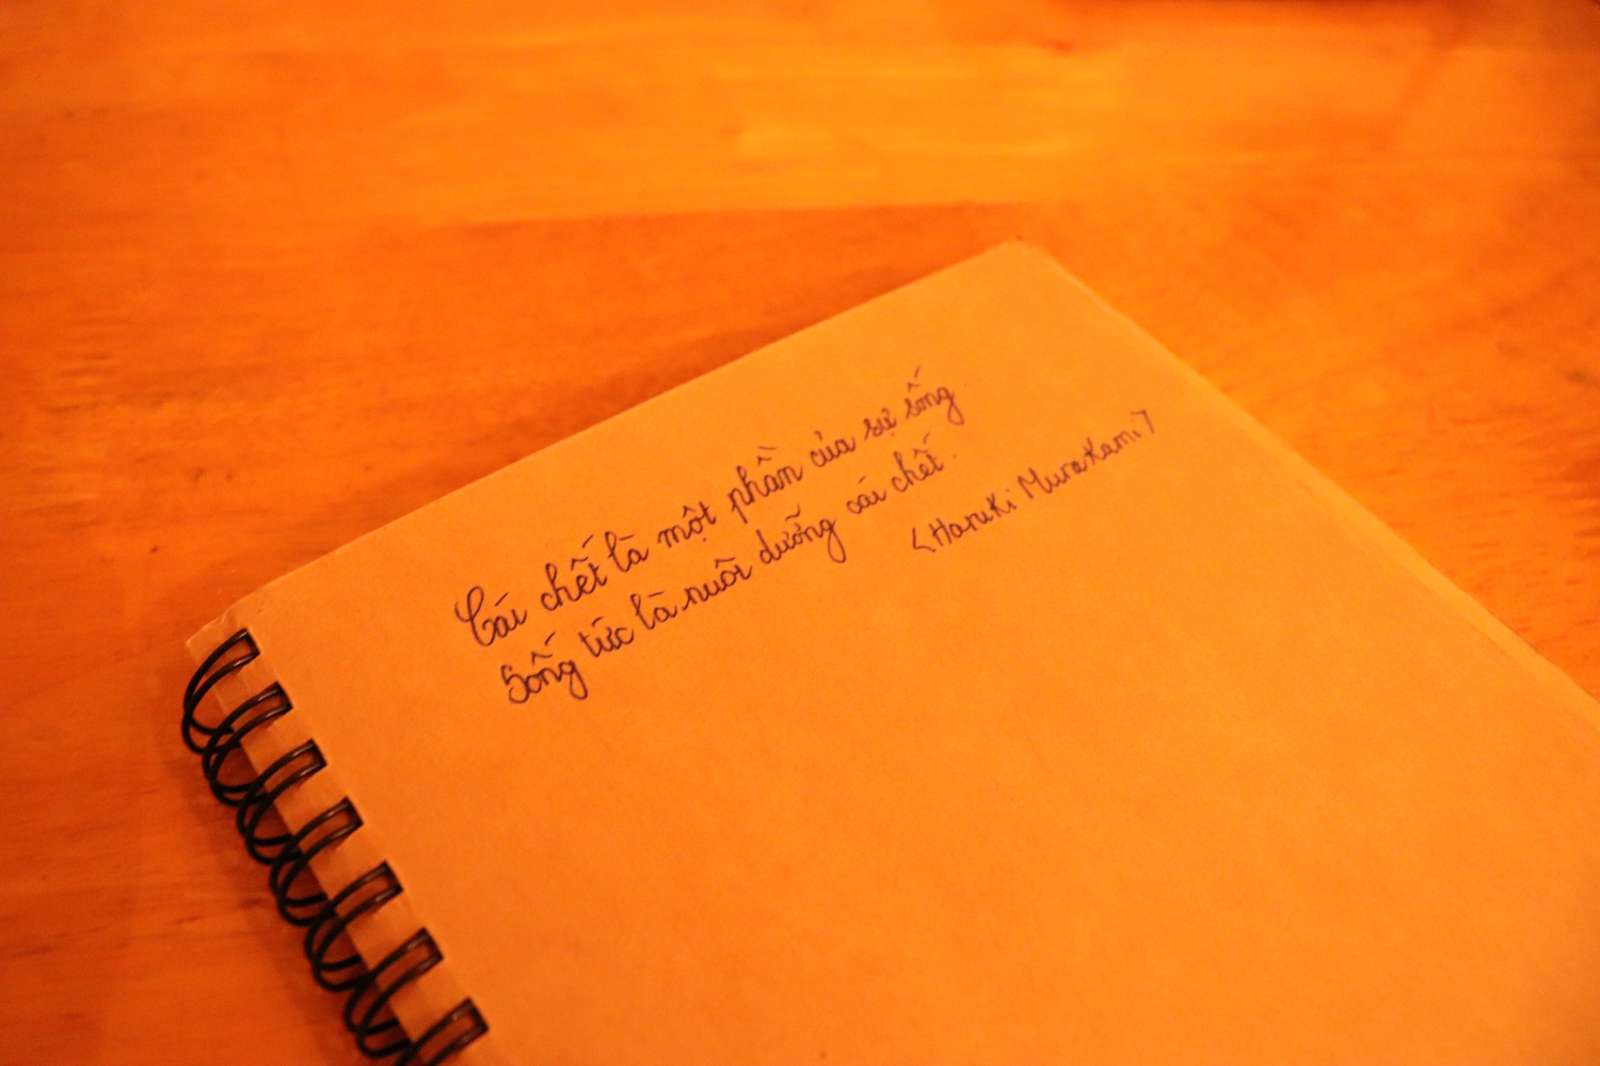 Cái chết là một phần của sự sống
Sống tức là nuôi dưỡng cái chết.
<Haruki Murakami>